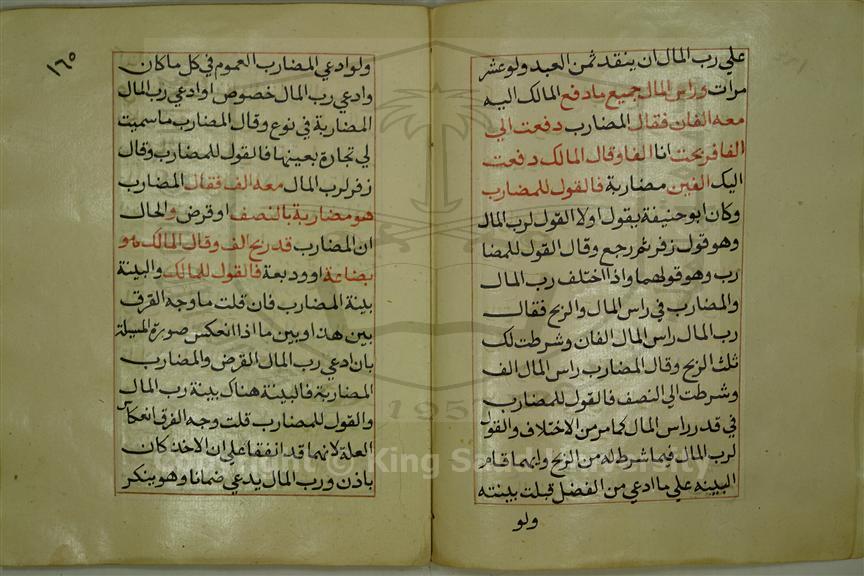 علي رب المال ان ينقد ثمن العبد ولو عشر
مرات وراس المال جميع ما دفع المالك اليه
معه الفان فقال المضارب دفعت الي
الفا فربحت انا الفا وقال المالك دفعت
اليك الفين مضاربة فالقول للمضارب
وكان ابو حنيفة يقول اولا القول لرب المال
وهو قول زفر ثم رجع وقال القول للمضا
رب وهو قولهما واذا اختلف رب المال
والمضارب في راس المال والربح فقال
رب المال راس المال الفان وشرطت لك
ثلث الربح وقال المضارب راس المال الف
وشرطت الي النصف فالقول للمضارب
في قدر راس المال كما مر من الاختلاف والقول
لرب المال فيما شرط له من الربح وايهما قام
البينه علي ما ادعي من الفضل قبلت بينته
ولو
١٦٥
ولو ادعي المضارب العموم في كل ما كان
وادعي رب المال خصوص او ادعي رب المال
المضاربة في نوع وقال المضارب ما سميت
لي تجارة بعينها فالقول للمضارب وقال
زفر لرب المال معه الف فقال المضارب
هو مضاربة بالنصف او قرض والحال
ان المضارب قد ربح الف وقال المالك هو
بضاعة او وديعة فالقول للمالك والبينة
بينة المضارب فان قلت ما وجه الفرق
بين هذا وبين ما اذا انعكس صورة المسيلة
بان ادعي رب المال القرض والمضارب
المضاربة فالبينة هناك بينة رب المال
والقول للمضارب قلت وجه الفرق انعكاس
العلة لانهما قد اتفقا علي ان الاخذ كان
باذن ورب المال يدعي ضمانا وهو ينكر
Copyright © King Saud University
195